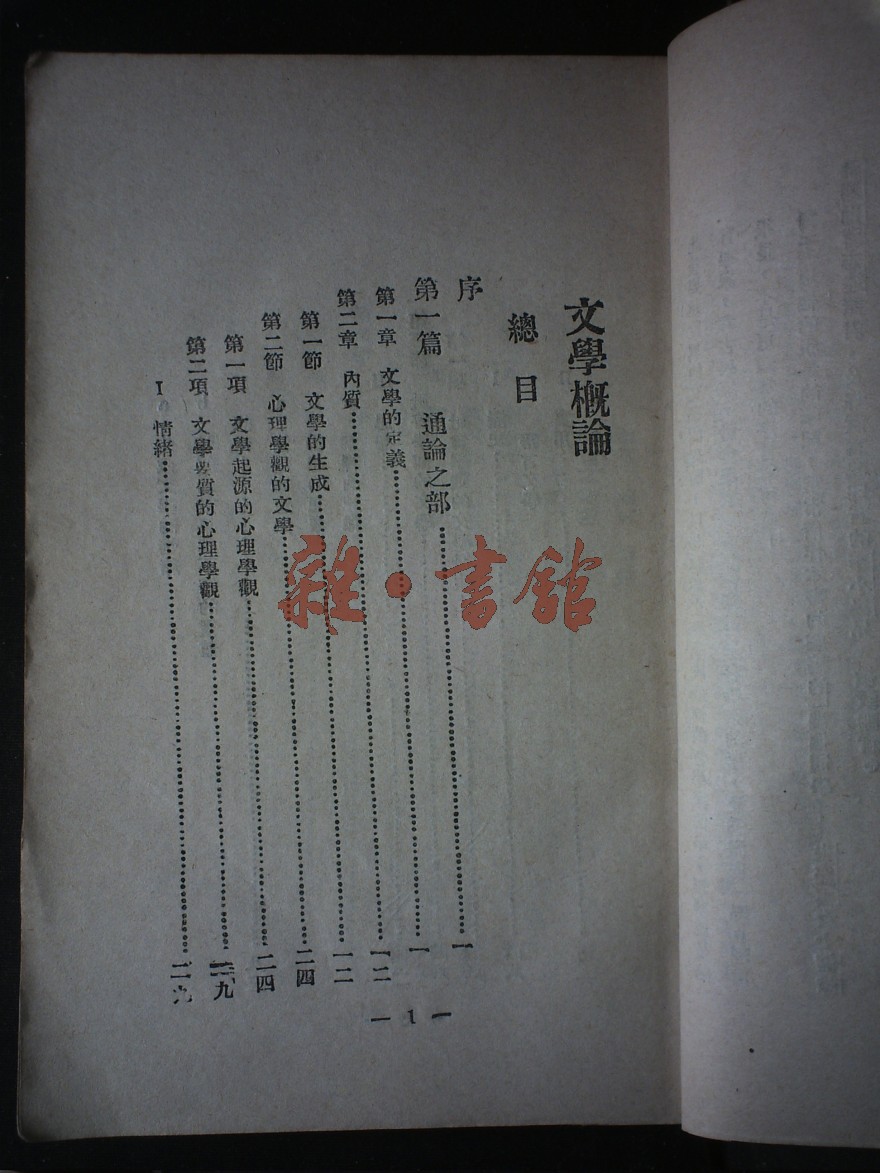 文學概論
總目
序
第一篇 通論之部……一
第一章 文學的定義……一
第二章 內質……一二
第一節 文學的生成……一二
第二節 心理學觀的文學……二四
第一項 文學起源的心理學觀……二四
第二項 文學要質的心理學觀……二九
I 情緒……二九
— 1 —
雜·書館